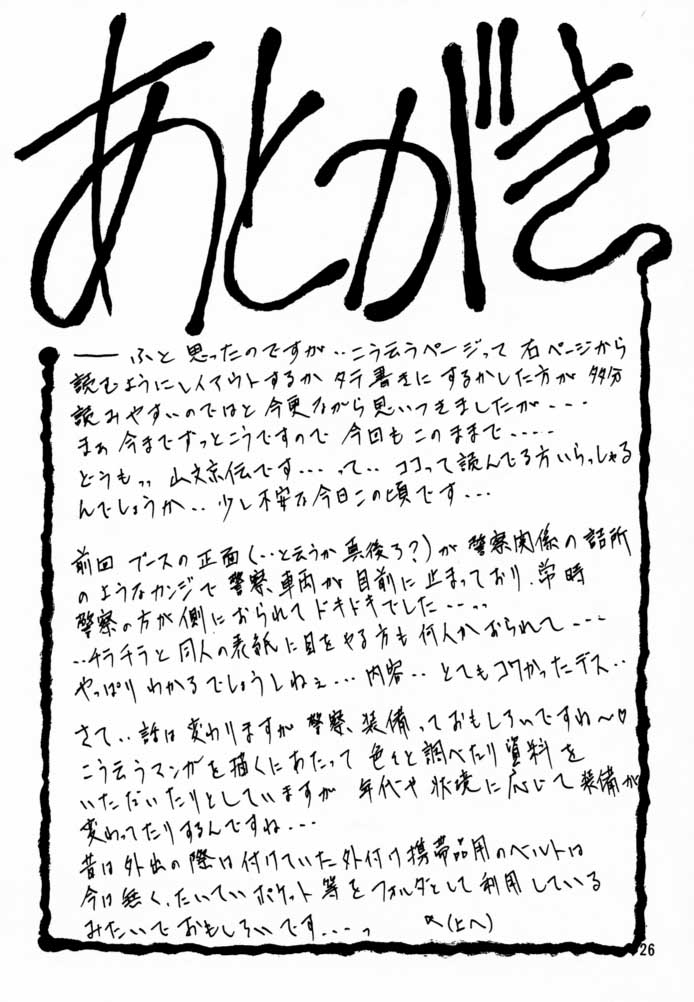 あとがき
── ふと思ったのですが‥こう云うページって右ページから
読むようにレイアウトするかタテ書きにするかした方が多分
読みやすいのではと今更ながら思いつきましたが---
まぁ今までずっとこうですので今回もこのままで-----
どうもっ、山文京伝です---、って‥ココって読んでる方いらっしゃる
んでしょうか‥少し不安な今日この頃です---
前回ブースの正面(‥と云うか真後ろ?)が警察関係の詰所
のようなカンジで警察車両が目前に止まっており、常時
警察の方が側におられてドキドキでした---‥
‥チラチラと同人の表紙に目をやる方も何人かおられて---
やっぱりわかるでしょうしねぇ---内容‥とてもコワかったデス‥
さて‥話は変わりますが警察装備っておもしろいですね〜♡
こう云うマンガを描くにあたって色々と調べたり資料を
いただいたりとしていますが年代や状況に応じて装備が
変わってたりするんですね---
昔は外出の際は付けていた外付け携帯品用のベルトは
今は無く、たいていポケット等をフォルダとして利用している
みたいでおもしろいです---っ (上へ)
26